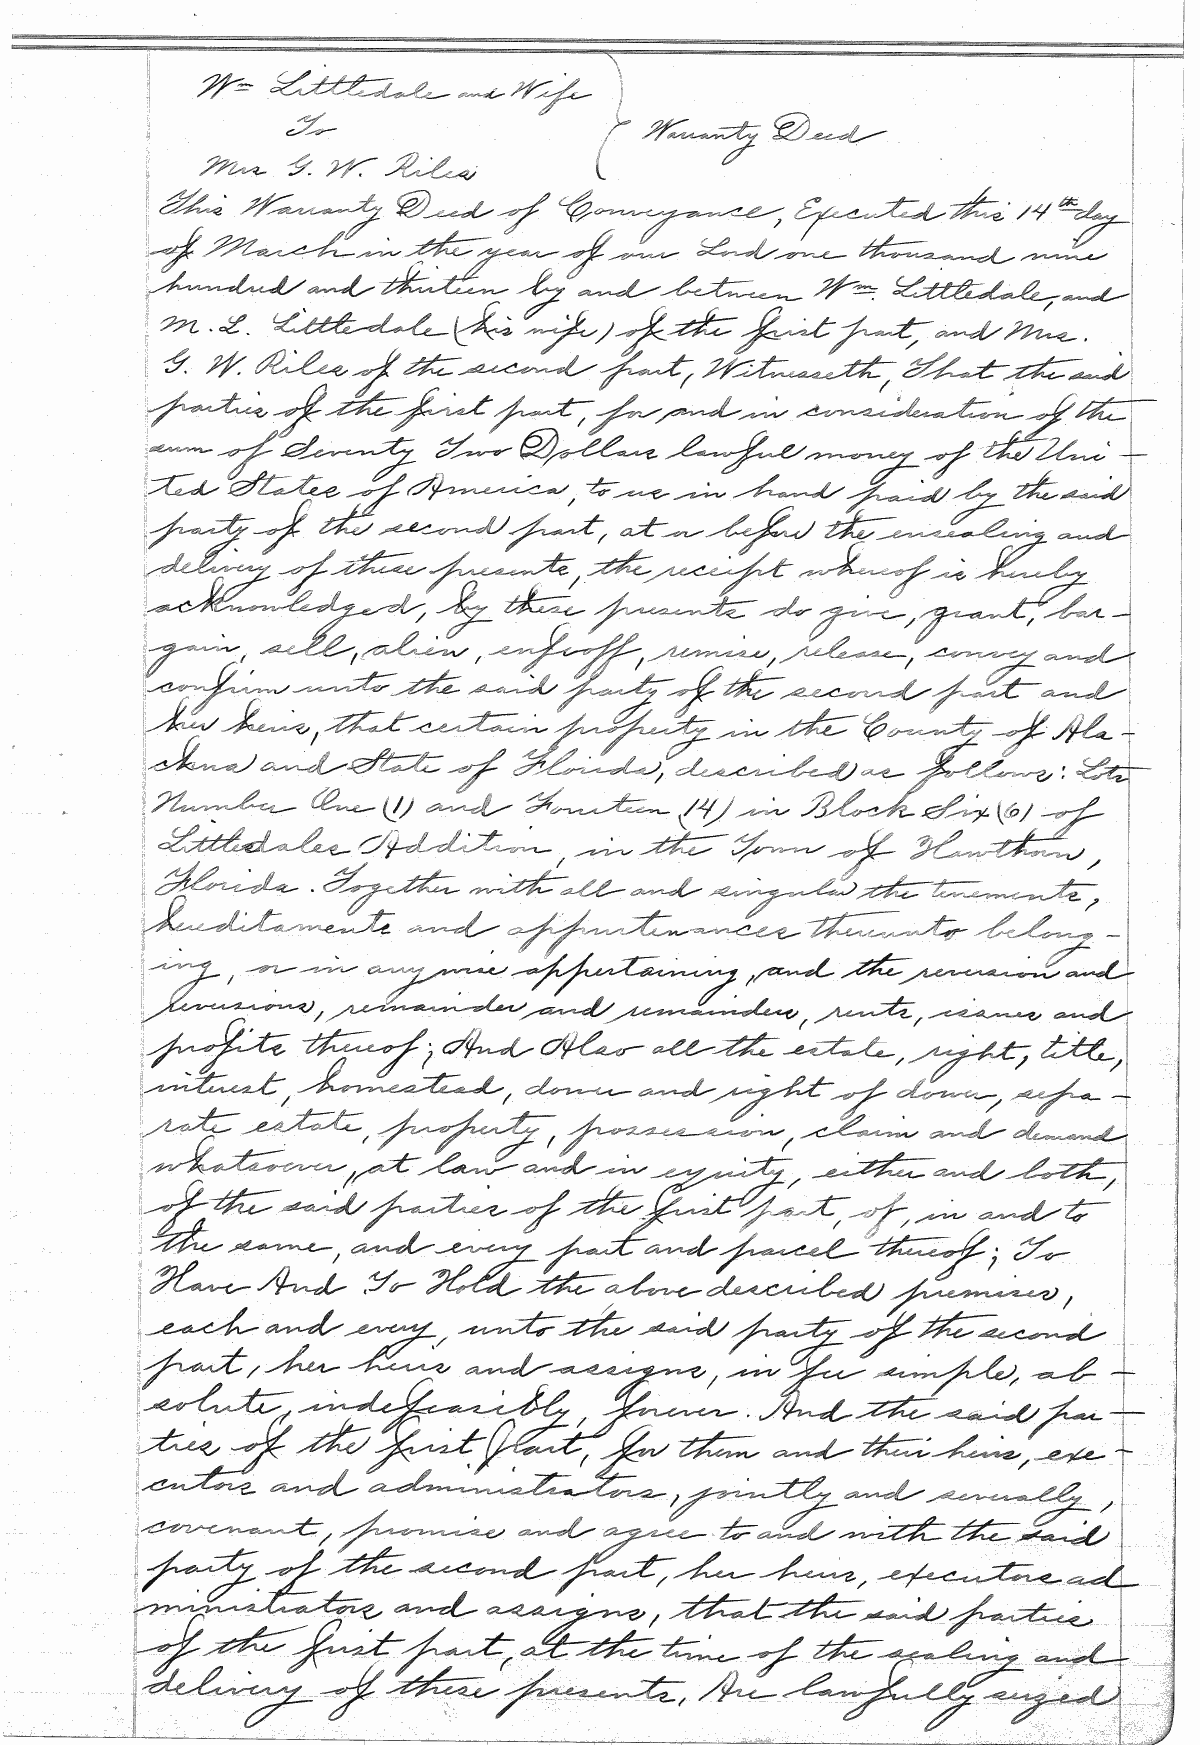 Wm Littledale and Wife
To
Warranty Deed
Mrs G. W. Riles
This Warranty Deed of Conveyance, Executed this 14th day
of March in the year of our Lord one thousand nine
hundred and thirteen by and between Wm. Littledale, and
M. L. Littledale (his wife) of the first part, and Mrs.
G. W. Riles of the second part, Witnesseth, That the said
parties of the first part, for and in consideration of the
sum of Seventy Two Dollars lawful money of the Uni-
ted States of America, to us in hand paid by the said
party of the second part, at or before the ensealing and
delivery of these presents, the receipt whereof is hereby
acknowledged, by these presents do give, grant, bar-
gain, sell, alien, enfeoff, remise, release, convey and
confirm unto the said party of the second part and
her heirs, that certain property in the County of Ala-
chua and State of Florida, described as follows: Lots
Number One (1) and Fourteen (14) in Block Six (6) of
Littledales Addition, in the Town of Hawthorn,
Florida. Together with all and singular the tenements,
hereditaments and appurtenances thereunto belong-
ing, or in anywise appertaining, and the reversion and
reversions, remainder and remainders, rents, issues and
profits thereof; And Also all the estate, right, title,
interest, homestead, dower and right of dower, sepa-
rate estate, property, possession, claim and demand
whatsoever, at law and in equity, either and both,
of the said parties of the first part, of, in and to
the same, and every part and parcel thereof; To
Have And To Hold the above described premises,
each and every, unto the said party of the second
part, her heirs and assigns, in fee simple, ab-
solute, indefeasibly, forever. And the said par-
ties of the first part, for them and their heirs, exe-
cutors and administrators, jointly and severally,
covenant, promise and agree to and with the said
party of the second part, her heirs, executors ad
ministrators and assigns, that the said parties
of the first part, at the time of the sealing and
delivery of these presents, Are lawfully seized